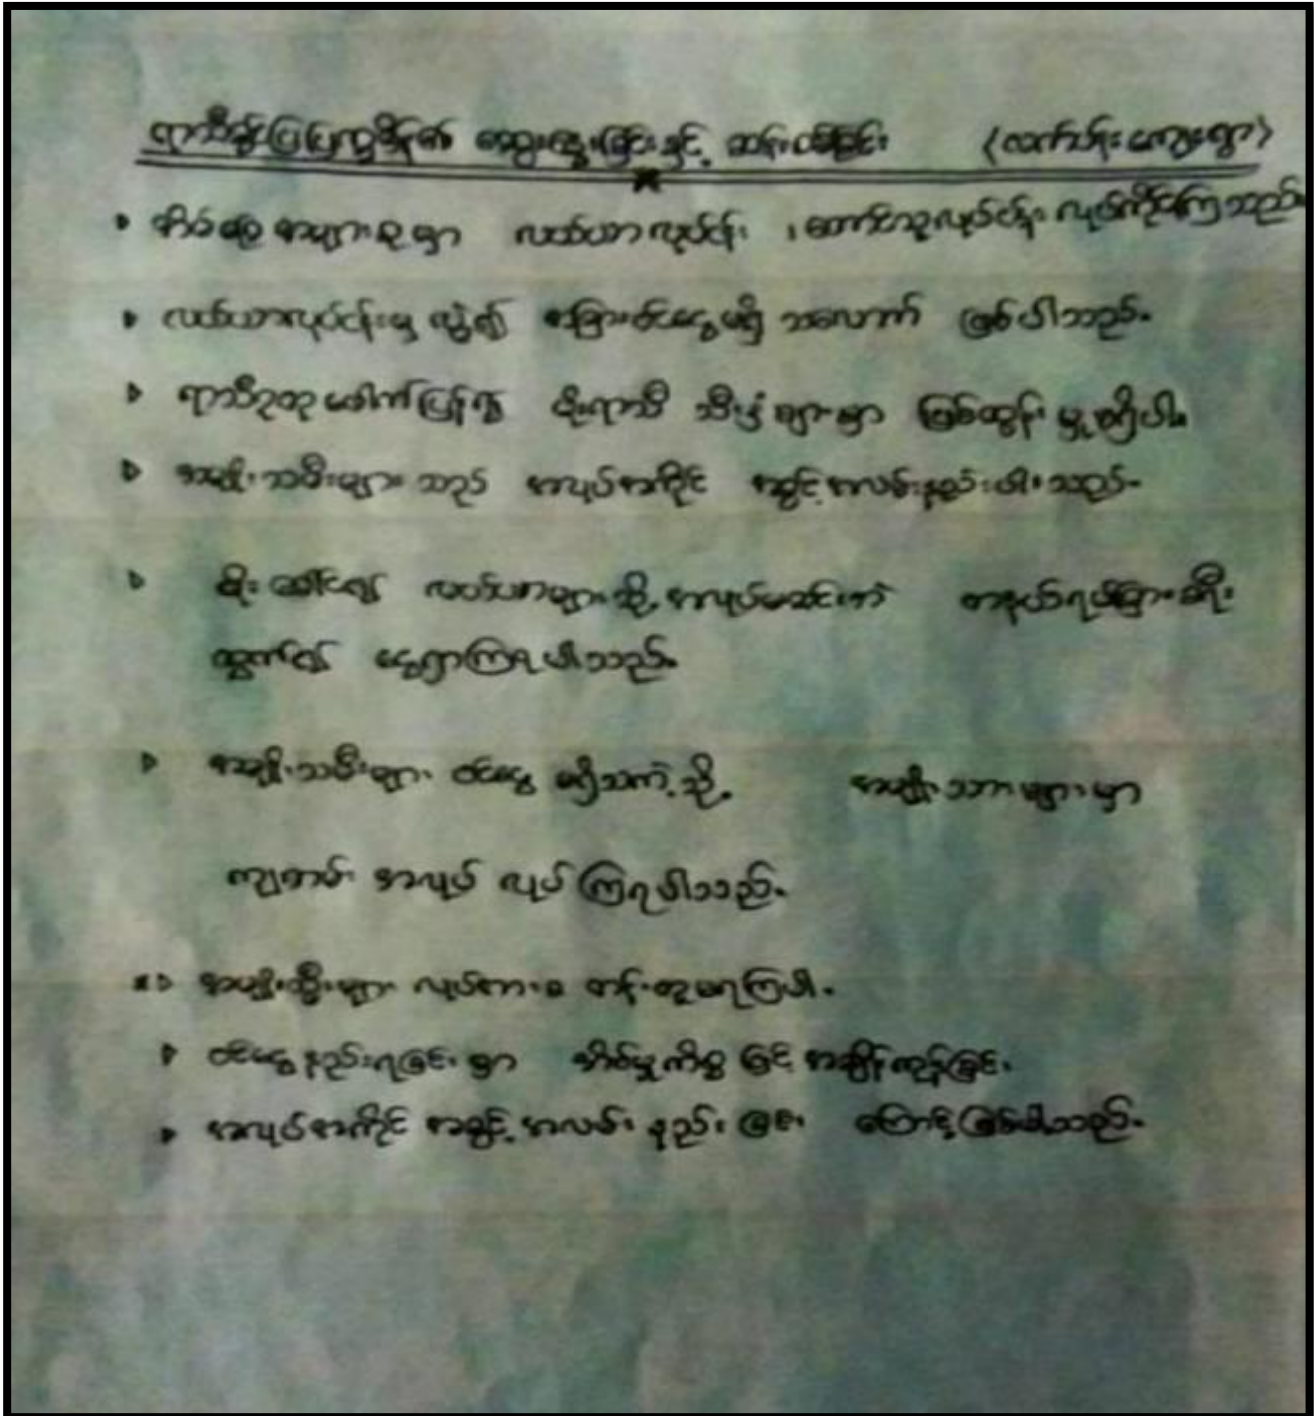 ရာသီခွင်ပြပြက္ခဒိန်၏ ဆွေးနွေးခြင်းနှင့် ဆန်းစစ်ခြင်း (လက်ပန်းကျေးရွာ)
▷ အိမ်ခြေ အများစုမှာ လယ်ယာလုပ်ငန်း ၊ တောင်သူလုပ်ငန်း လုပ်ကိုင်ကြသည်။
▷ လယ်ယာလုပ်ငန်းမှ လွဲ၍ အခြားဝင်ငွေမရှိ သလောက် ဖြစ်ပါသည်။
▷ ရာသီဥတု ဖေါက်ပြန်၍ မိုးရာသီ သီးနှံများမှာ ဖြစ်ထွန်းမှု မရှိပါ။
▷ အမျိုးသမီးများ သည် အလုပ်အကိုင် အခွင့်အလမ်းနည်းပါးသည်။
▷ မိုးခေါင်၍ လယ်ယာများသို့ အလုပ်မဆင်းဘဲ တနယ်ရပ်ခြားခရီး
ထွက်၍ ငွေရှာကြရပါသည်။
▷ အမျိုးသမီးများ ဝင်ငွေ မရှိသကဲ့သို့ အမျိုးသားများမှာ
ကျဘမ်း အလုပ် လုပ်ကြရပါသည်။
▷ အမျိုးသ္မီးများ လုပ်အားခ တန်းတူမရကြပါ။
▷ ဝင်ငွေနည်းရခြင်းမှာ အိမ်မှုကိစ္စ ဖြင့် အချိန်ကုန်ခြင်း၊
▷ အလုပ်အကိုင် အခွင့်အလမ်း နည်းခြင်း ကြောင့်ဖြစ်ပါသည်။